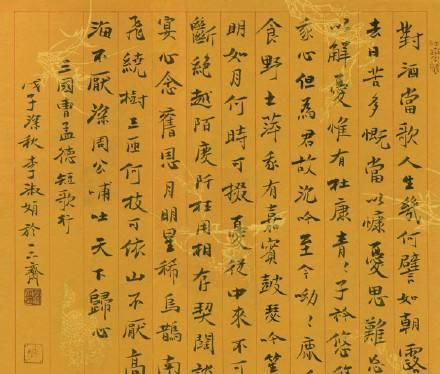 對酒當歌人生幾何譬如朝露
去日苦多慨當以慷憂思難忘
以解憂惟有杜康青〻子衿悠
我心但為君故沉吟至今呦〻鹿
食野之苹我有嘉賓鼓瑟吹笙
明如月何時可掇憂從中來不可
斷絕越陌度阡枉用相存契闊談
宴心念舊恩月明星稀烏鵲南
飛繞樹三匝何枝可依山不厭高
海不厭深周公哺吐天下歸心
三國曹孟德短歌行
戊子深秋李淑娟於齋